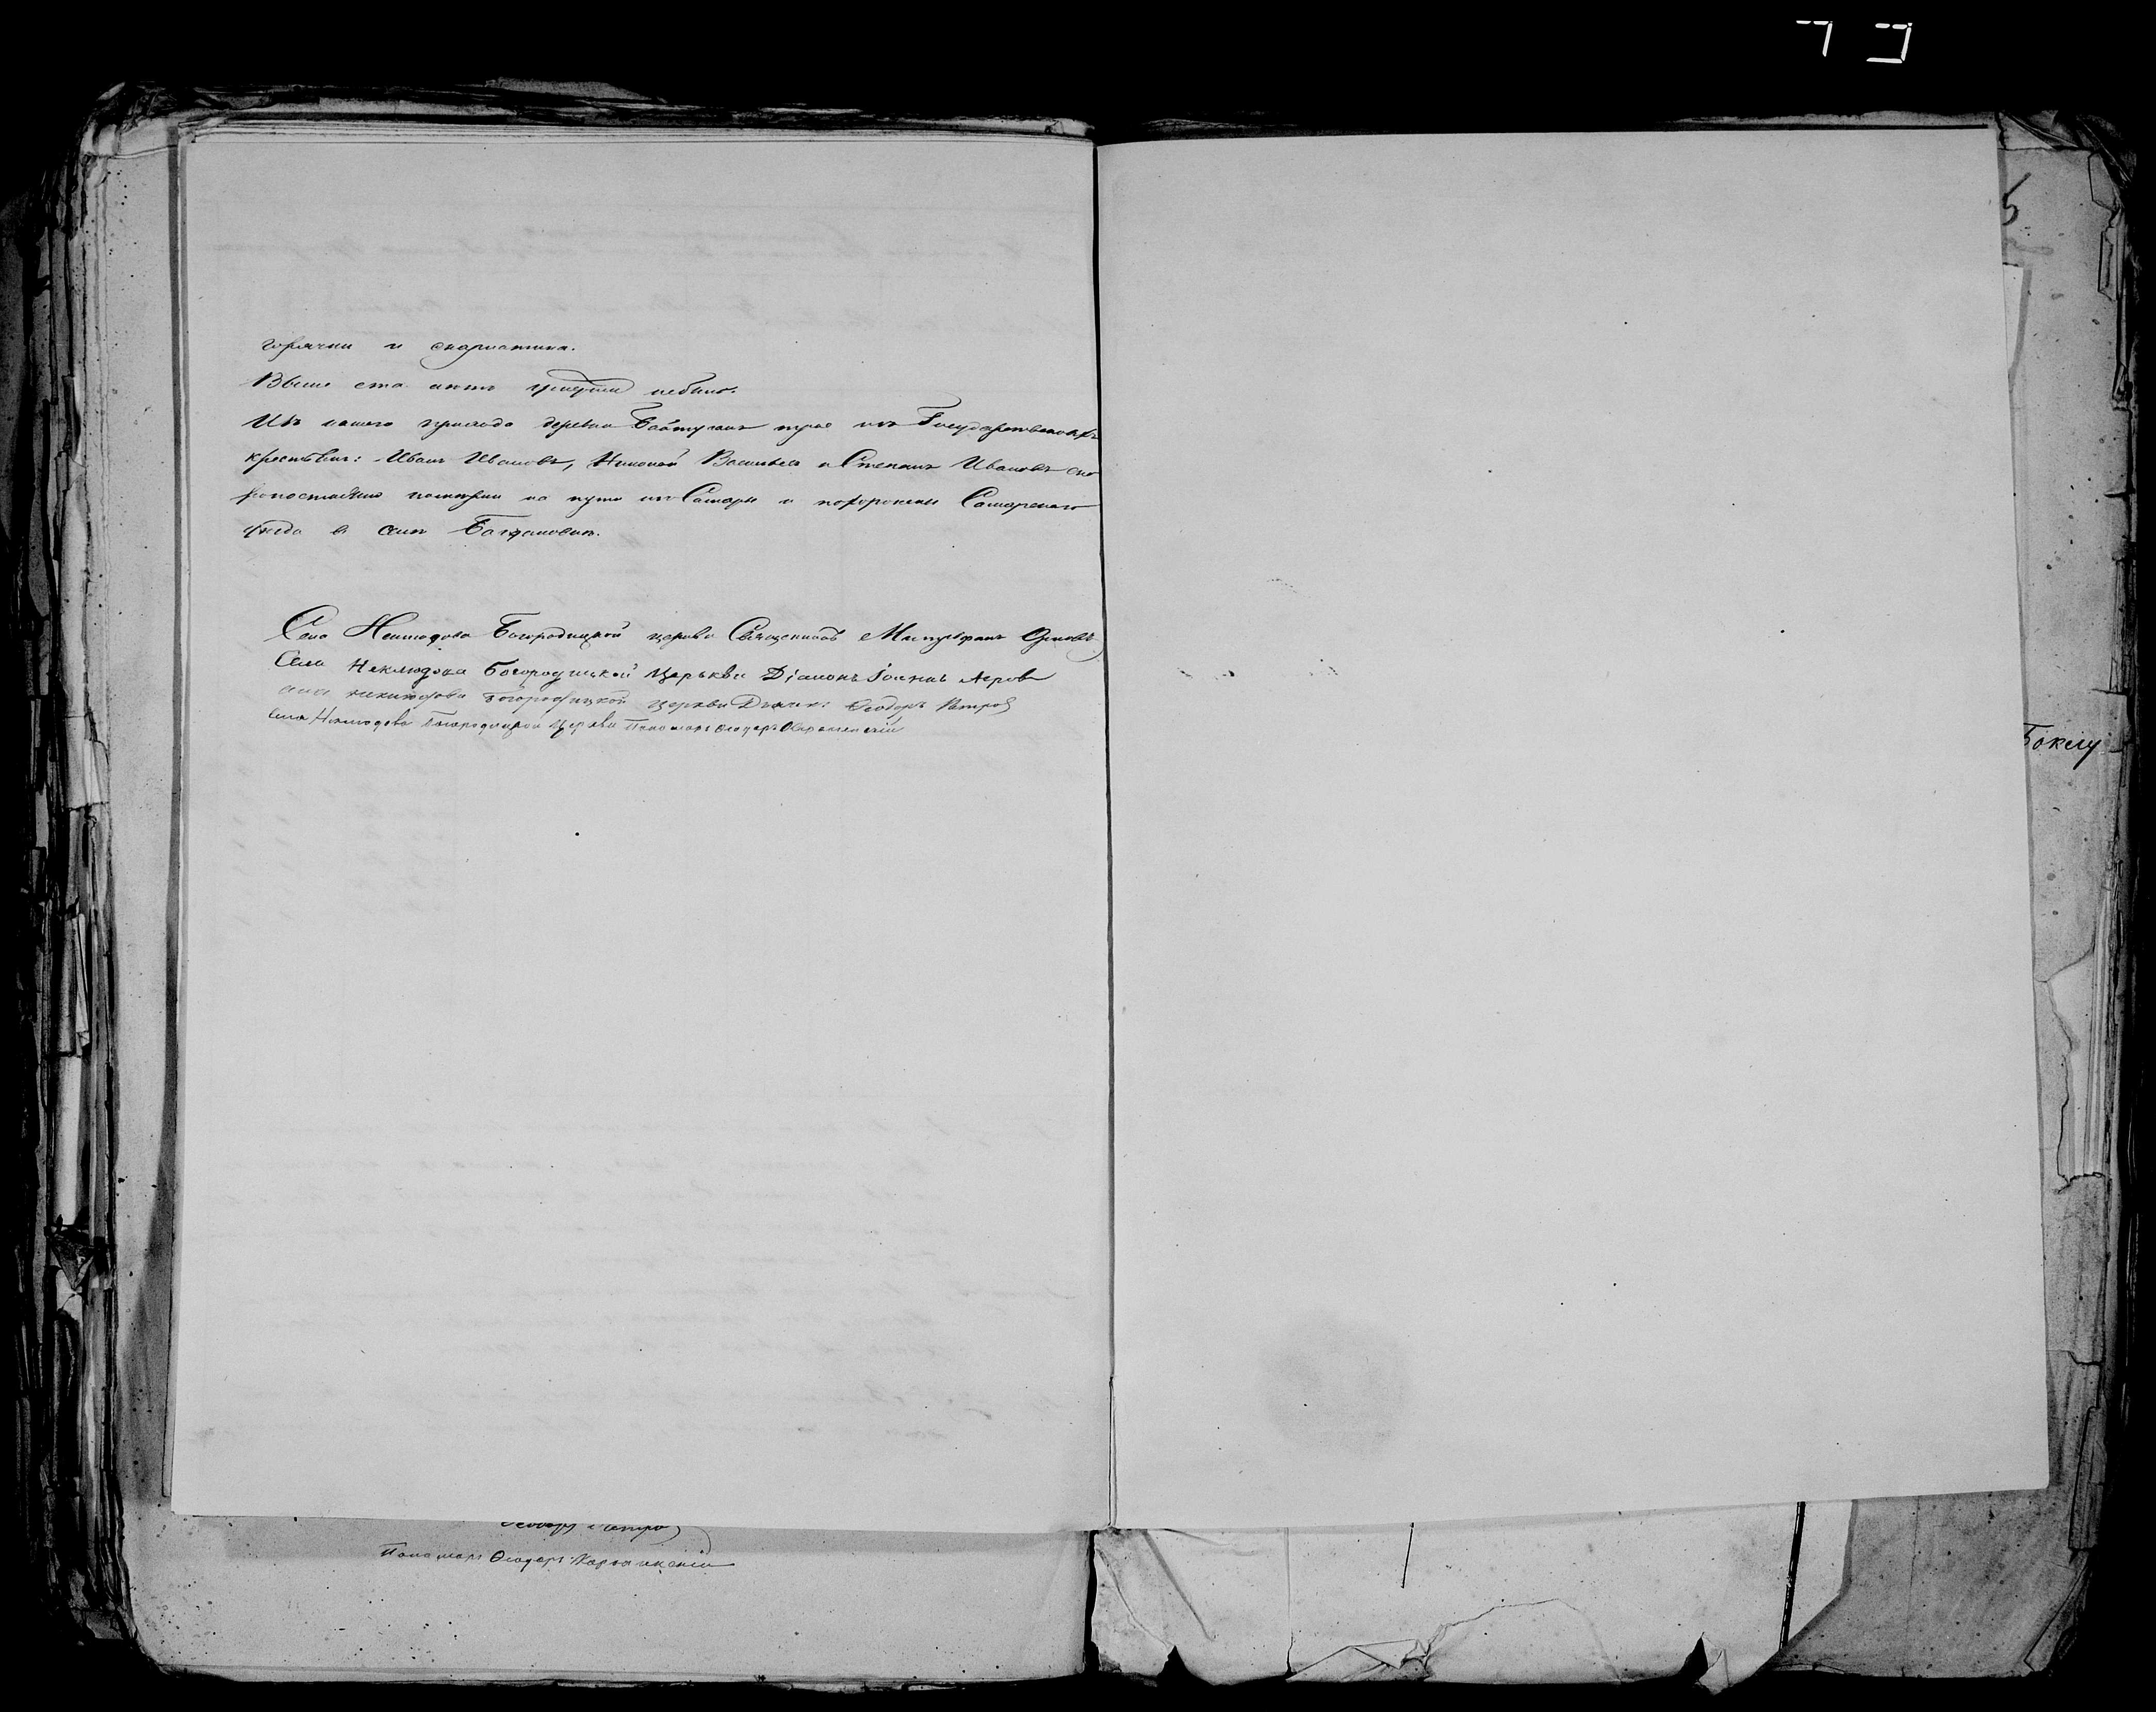 горячки и скарлатина.
Выше ста летъ умерши небыло.
Изъ нашего прихода деревни Байтуганъ трое изъ Государственныхъ
крестьянъ: Иванъ Ивановъ, Николай Васильевъ и Степанъ Ивановъ ско
ропостижно померли на пути изъ Самары и похоронены Самарскаго
уезда в селе Богдановке.
Села Неклюдова Богородицкой церкви Священникъ Орловъ
Села Неклюдова Богородицкой Церькви Діаконъ Іоаннъ
села Неклюдова Богородицкой церкви Дьячекъ Ѳеодоръ Петров
Села Неклюдова Богородицкой Церкви Пономарь Ѳеодоръ
Ѳеодоръ Петров
Пономарь Ѳеодоръ